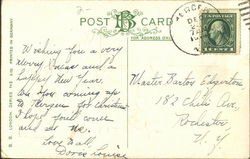 POST CARD
FOR ADDRESS ONLY
Wishing you a very
merry Xmas and a
happy New Year.
Are you coming up
to for Christmas
I hope you'll come
and see me.
Love to all
Doris Louise
Master Barton Edgerton
182 Chili Ave.
Rochester
N.Y.
PRINTED IN GERMANY
LONDON, SERIES